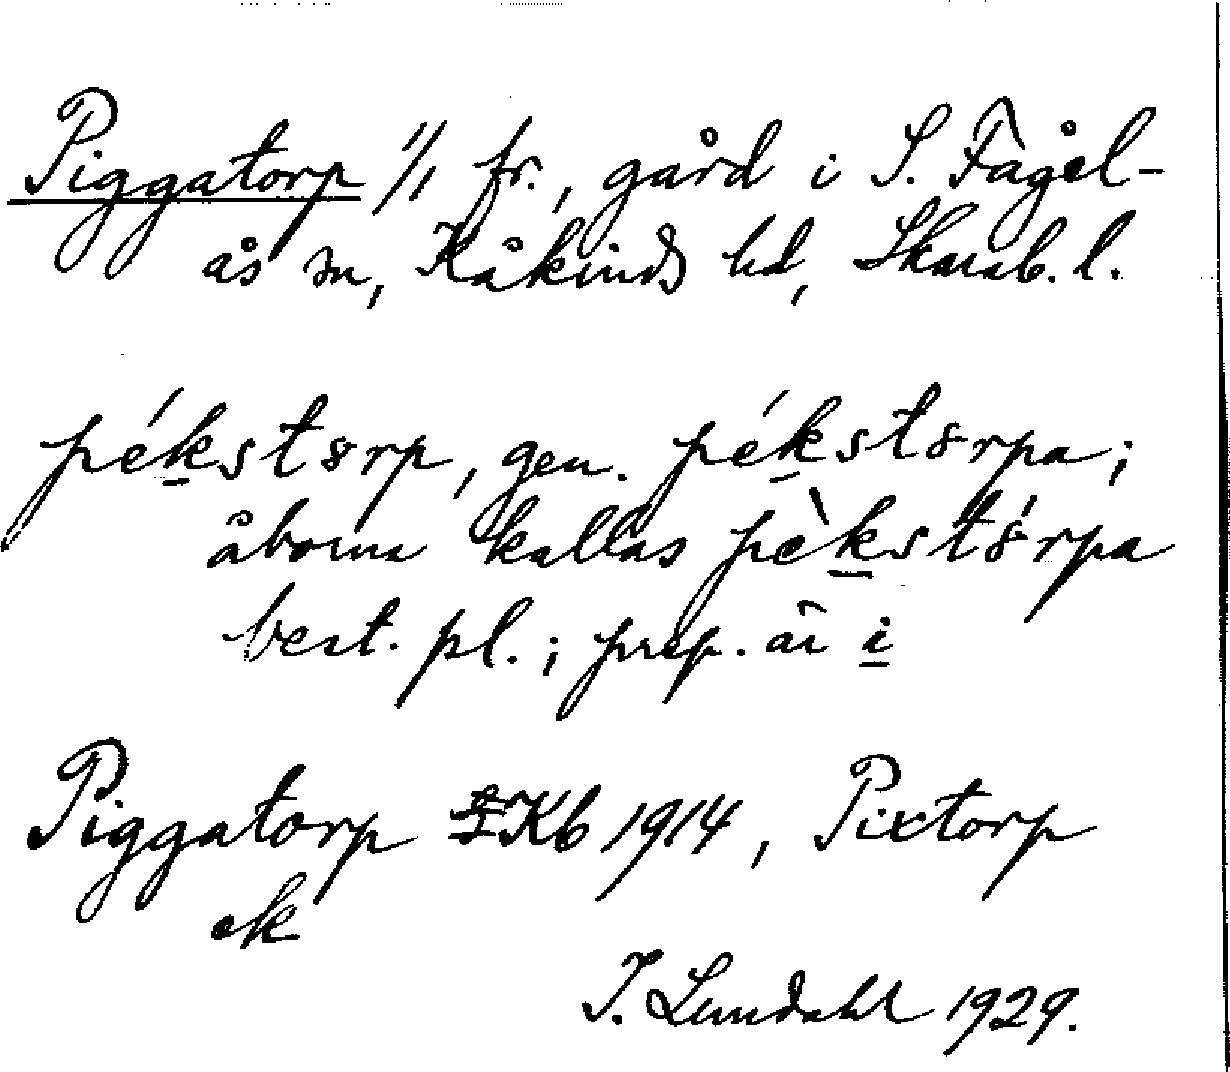 Piggatorp 1/1 fr., gård i S. Fågel-
ås sn, Kåkinds hd, Skarab. l.
pékstørp, gen. pékstørpa;
åborna kallas pèkstǿrpa
best. pl.; prep. är i
Piggatorp Kb 1914, Pixtorp
ek
I. Lundahl 1929.